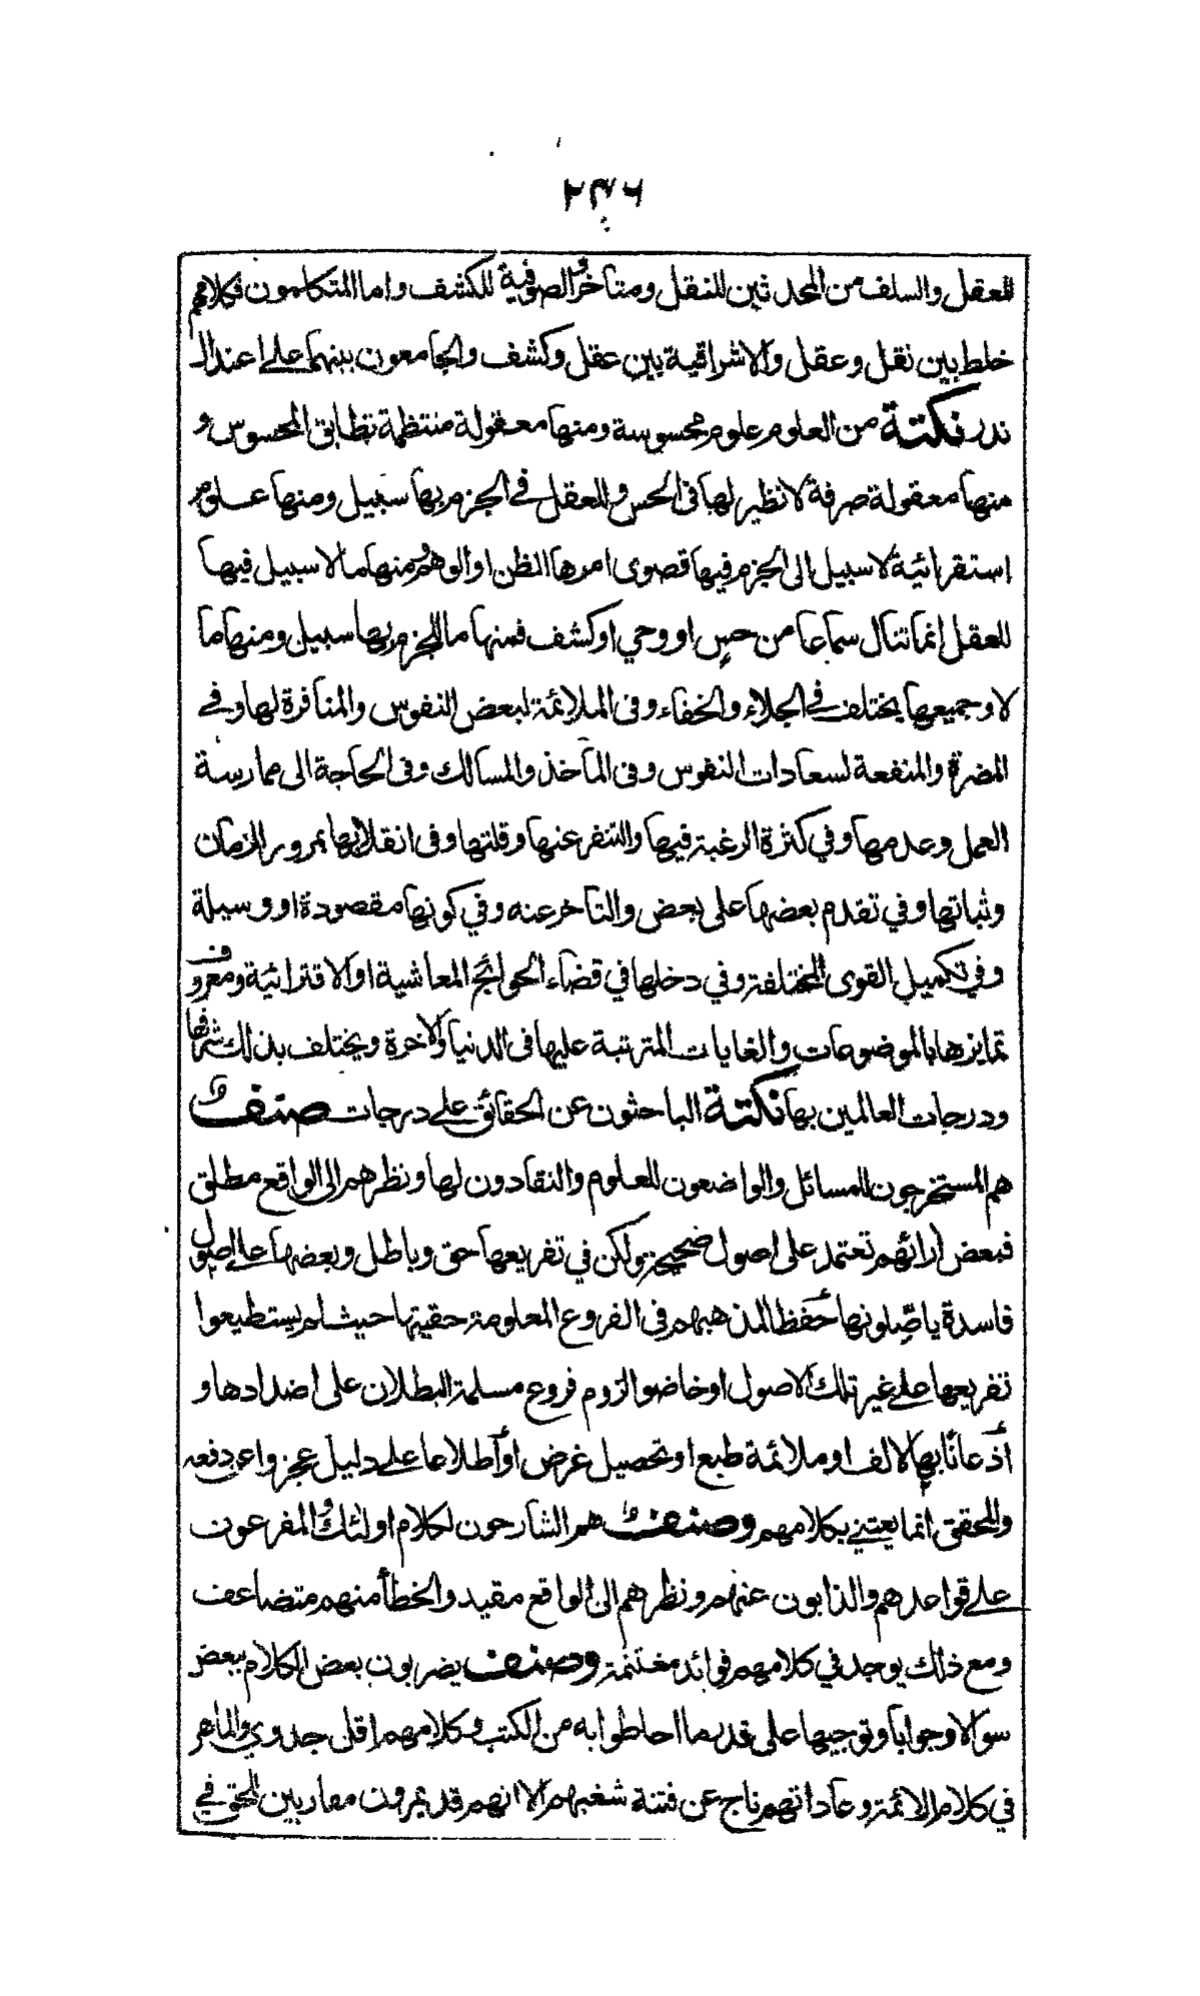 ٢٣٦
للعقل والسلف من المحدثين للنقل ومتاخرو الصوفية للكشف واما المتكلمون فكلامهم
خلط بين نقل وعقل والاشراقية بين عقل وكشف والجامعون بينهما على اعتدال
ندر نكتة من العلوم علوم محسوسة ومنها معقولة منتظمة تطابق المحسوس و
منها معقولة صرفة لا نظير لها فى الحس وللعقل في الجزم بها سبيل ومنها علوم
استقرائية لا سبيل الى الجزم فيها قصوى امرها الظن او الوهم ومنها ما لا سبيل فيها
للعقل انما تنال سماعا من حس او وحي او كشف فمنها ما للجزم بها سبيل ومنها ما
لا وجميعها يختلف في الجلاء والخفاء وفى الملائمة لبعض النفوس والمنافرة لها وفي
المضرة والمنفعة لسعادات النفوس وفى المآخذ والمسالك وفى الحاجة الى ممارسة
العمل وعدمها وفي كثرة الرغبة فيها والتنفر عنها وقلتها وفى انقلابها بمرور الزمان
وثباتها وفي تقدم بعضها على بعض والتاخر عنه وفي كونها مقصودة او وسيلة
وفي تكميل القوى المختلفة وفي دخلها في قضاء الحوائج المعاشية او الاقترائية ومعروف
تمايزها بالموضوعات والغايات المترتبة عليها فى الدنيا والآخرة ويختلف بذلك شرفها
ودرجات العالمين بها نكتة الباحثون عن الحقائق على درجات صنف
هم المستخرجون للمسائل والواضعون للعلوم والنقادون لها ونظرهم الى الواقع مطلق
فبعض ارائهم تعتمد على اصول صحيحة ولكن في تفريعها حق وباطل وبعضها على اصول
فاسدة ياصّلونها حفظا لمذهبهم فى الفروع المعلومة حقيتها حيث لم يستطيعوا
تفريعها على غير تلك الاصول او خاضوا لزوم فروع مسلمة البطلان على اضدادها و
اذعانا بها لالف او ملائمة طبع او تحصيل غرض او اطلاعا على دليل عجزوا عن دفعه
والمحقق انما يعتني بكلامهم وصنف هم الشارحون لكلام اولئك والمفرعون
على قواعدهم والذابون عنهم ونظرهم الى الواقع مقيد والخطأ منهم متضاعف
ومع ذلك يوجد في كلامهم فوائد مغتنمة وصنف يضربون بعض الكلام ببعض
سوالا وجوابا وتوجيها على قدر ما احاطوا به من الكتب وكلامهم اقل جدوي والماهر
في كلام الائمة وعاداتهم ناج عن فتنة شغبهم الا انهم قد يمرون مهاربين للحق في